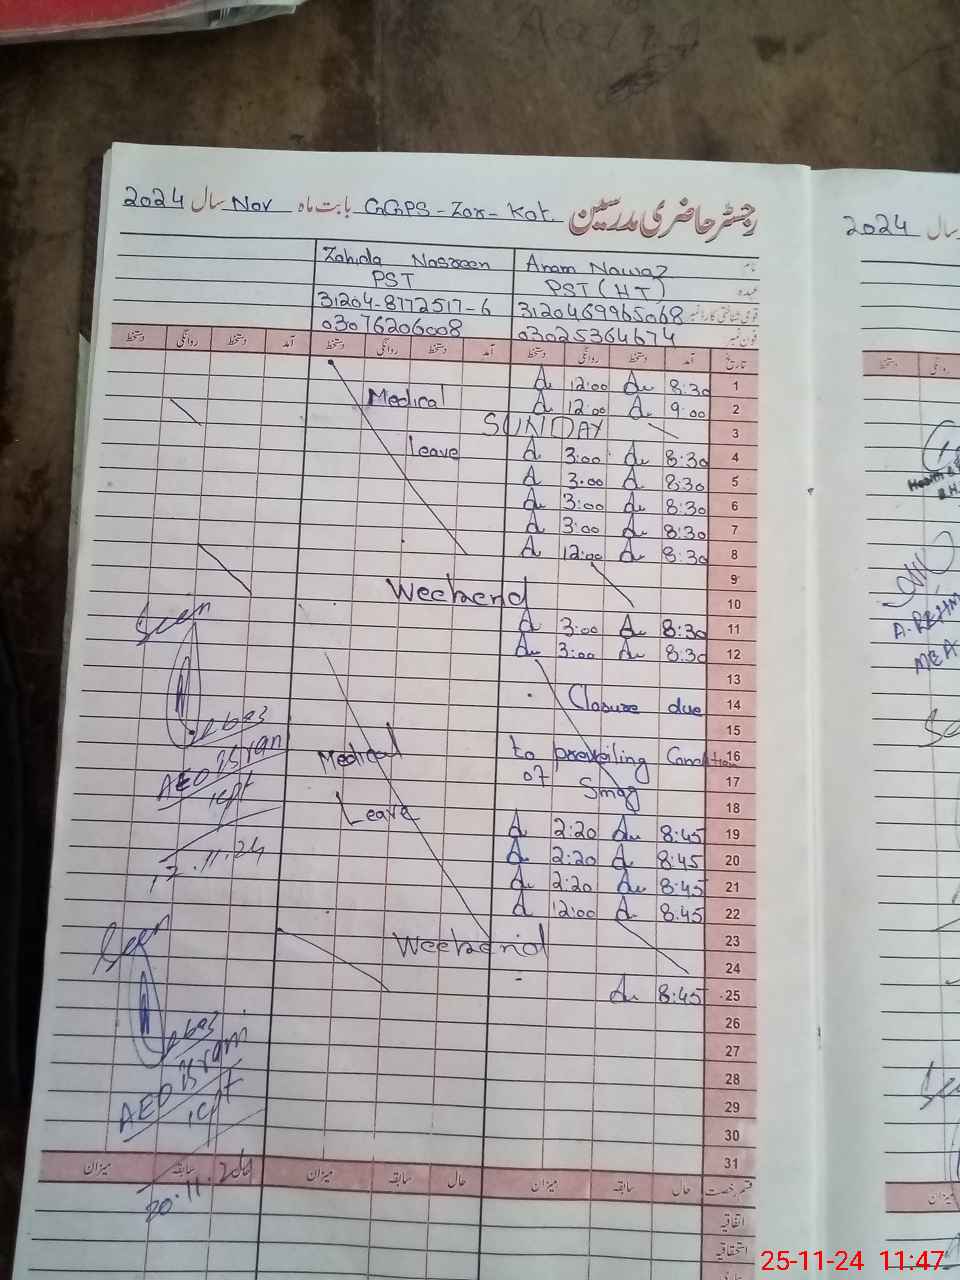 رجسٹر حاضری مدرسین GGPS-Zor-Kot بابت ماہ Nov سال 2024
نام Anam Nawaz Zahida Nasreen
عہدہ PST (HT) PST
قومی شناختی کارڈ نمبر 3120469965068 31204-8772517-6
فون نمبر 03025364674 03076206008
تاریخ آمد دستخط روانگی دستخط آمد دستخط روانگی دستخط آمد دستخط روانگی دستخط
1 8:30 12:00
Medical
2 9:00 12:00
3 SUNDAY
4 8:30 3:00 Leave
5 8:30 3:00
6 8:30 3:00
7 8:30 3:00
8 8:30 12:00
9
Weekend
10
11 8:30 3:00
Seen
12 8:30 3:00
13
14 Closure due
15
16 to prevailing Condition
Medical
17 of Smog
18
Leave
19 8:45 2:20
20 8:45 2:20
21 8:45 2:20
22 8:45 12:00
23 Weekend
Seen
24
25 8:45
26
27
28
29
30
31
AEO
20.11.24
قسم رخصت حال سابقہ میزان حال سابقہ میزان حال سابقہ میزان
اتفاقیہ
استحقاقیہ
2024 سال
Health &
A. REHM
MEA
25-11-24 11:47